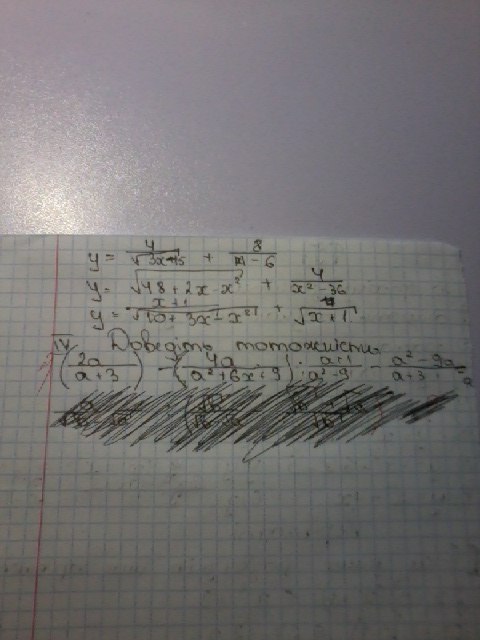 y = 4/√(3x+15) + 8/(|x|-6)
y = √(48+2x-x²) + 4/(x²-36)
y = (x+1)/√(10+3x-x²) + √(x+1)
IV Доведіть тотожність
(2a/(a+3)) - (4a/(a²+6x+9)) : (a+1)/(a²-9) - (a²-9a)/(a+3) =